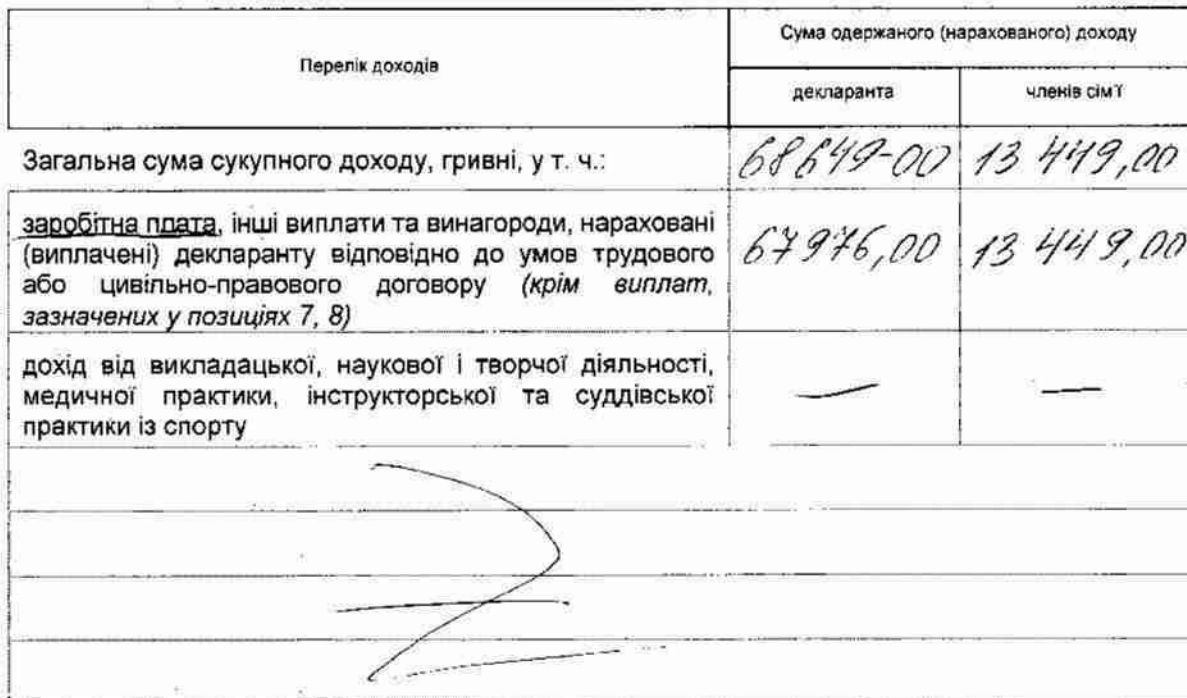 Перелік доходів
Сума одержаного (нарахованого) доходу
декларанта
членів сім'ї
Загальна сума сукупного доходу, гривні, у т. ч.:
68649-00
13 449,00
заробітна плата, інші виплати та винагороди, нараховані
(виплачені) декларанту відповідно до умов трудового
або цивільно-правового договору (крім виплат,
зазначених у позиціях 7, 8)
67976,00
13 449,00
дохід від викладацької, наукової і творчої діяльності,
медичної практики, інструкторської та суддівської
практики із спорту
—
—